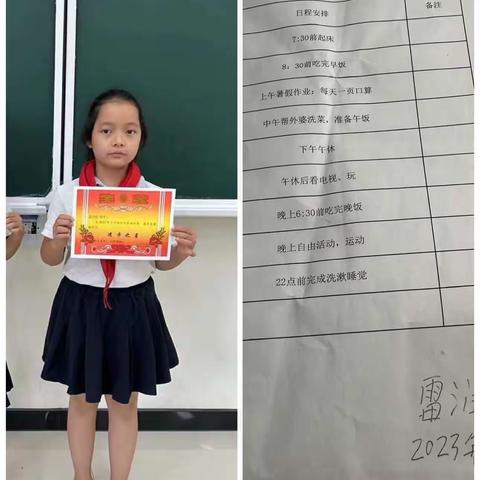 奖状
进步之星
日程安排
备注
7:30前起床
8：30前吃完早饭
上午暑假作业：每天一页口算
中午帮外婆洗菜，准备午饭
下午午休
午休后看电视、玩
晚上6:30前吃完晚饭
晚上自由活动，运动
22点前完成洗漱睡觉
雷
2023年